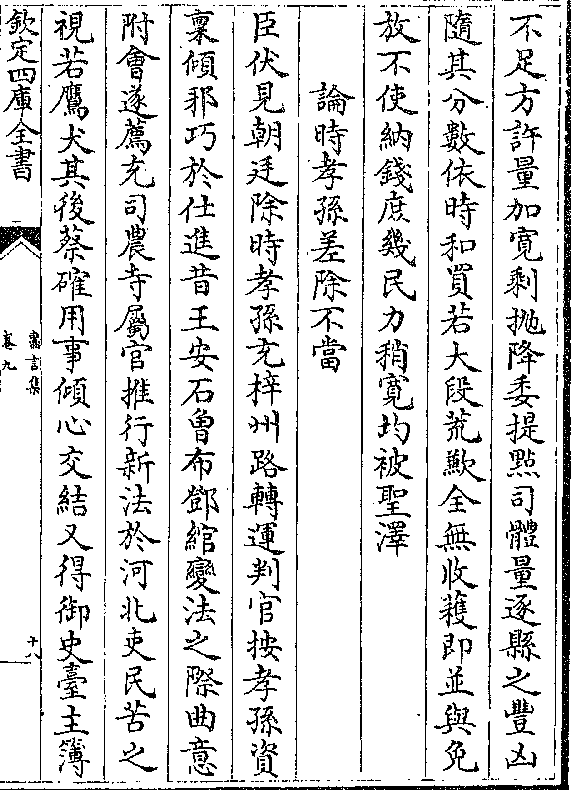 不足方許量加寬剩抛降委提㸃司體量逐縣之豐凶
隨其分數依時和買若大段荒歉全無收穫即並與免
放不使納錢庶幾民力稍寛均被聖澤
論時孝孫差除不當
臣伏見朝廷除時孝孫充梓州路轉運判官按孝孫資
禀傾邪巧於仕進昔王安石曾布鄧綰變法之際曲意
附會遂薦充司農寺屬官推行新法於河北吏民苦之
視若鷹犬其後蔡確用事傾心交結又得御史臺主簿
欽定四庫全書
盡言集
卷九
十八